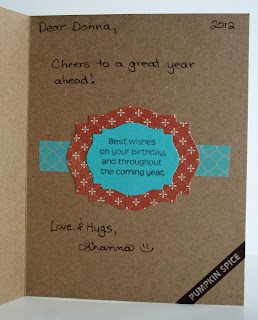 Dear Donna, 2012
Cheers to a great year
ahead!
Best wishes
on your birthday,
and throughout
the coming year.
Love & Hugs,
Shanna
PUMPKIN SPICE